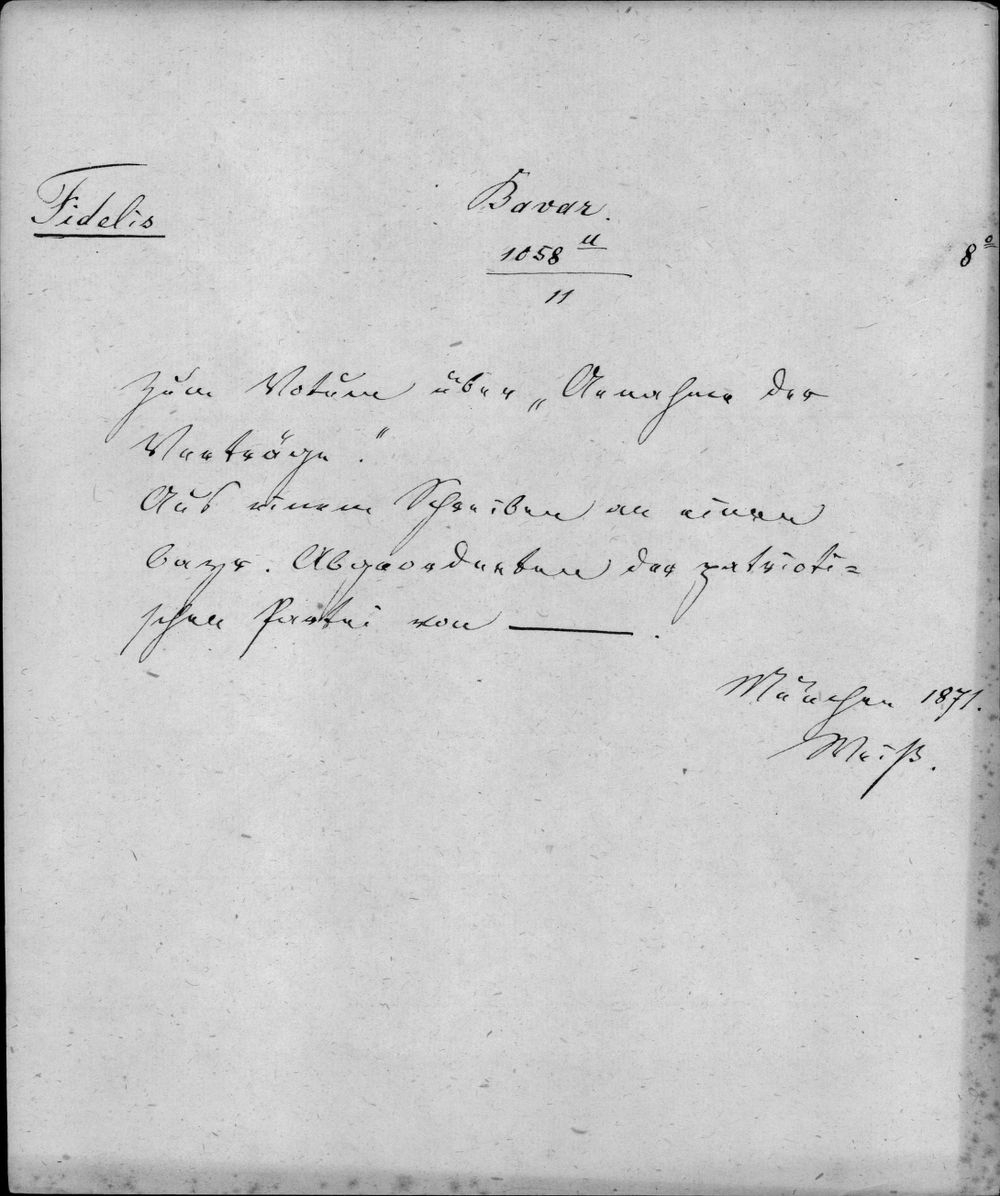 Fidelis
Bavar.
1058 u
11
8°
Zum Votum über „Annahme der
Verträge."
Aus einem Schreiben an einen
bayr. Abgeordneten der patrioti=
schen Partei von ———.
München 1871.
Weiß.